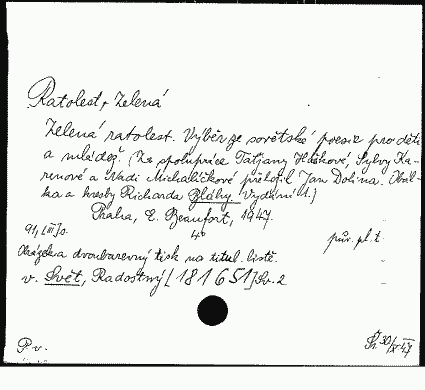 Ratolest, Zelená
Zelená ratolest. Výběr ze sovětské poesie pro děti
a mládež. (Za spolupráce Taťjany Haškové, Sylvy Ka-
renové a Nadi Michaláčkové přeložil Jan Dolina. Obál-
ka a kresby Richarda Bláhy. Vydání 1.)
Praha, E. Beaufort, 1947.
91, [III] s. 4° pův. pl. t.
Obázka a dvoubarevný tisk na titul. listě.
v. Svět, Radostný [181651] Sv. 2
P v. 30/XI 47